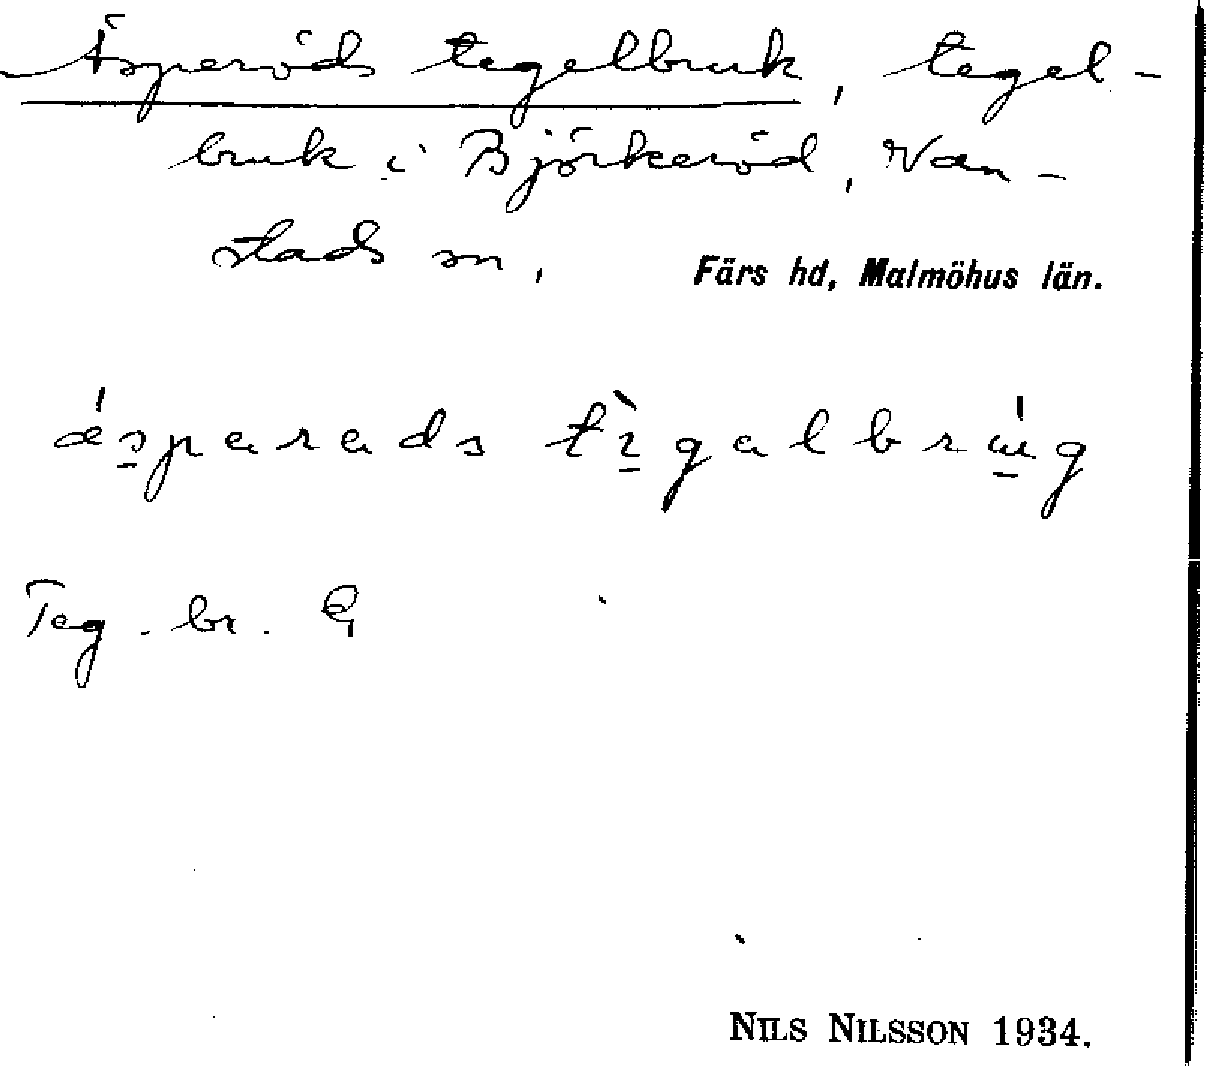 Äsperöds tegelbruk, tegel-
bruk i Björkeröd, Van-
stads sn, Färs hd, Malmöhus län.
Teg. br. E
NILS NILSSON 1934.